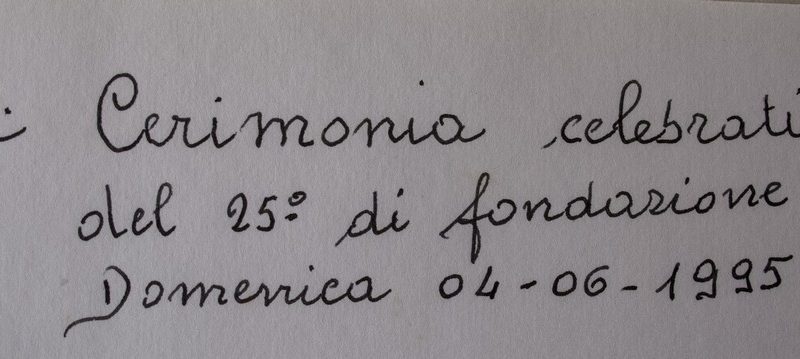 : Cerimonia celebrati
del 25º di fondazione
Domenica 04-06-1995